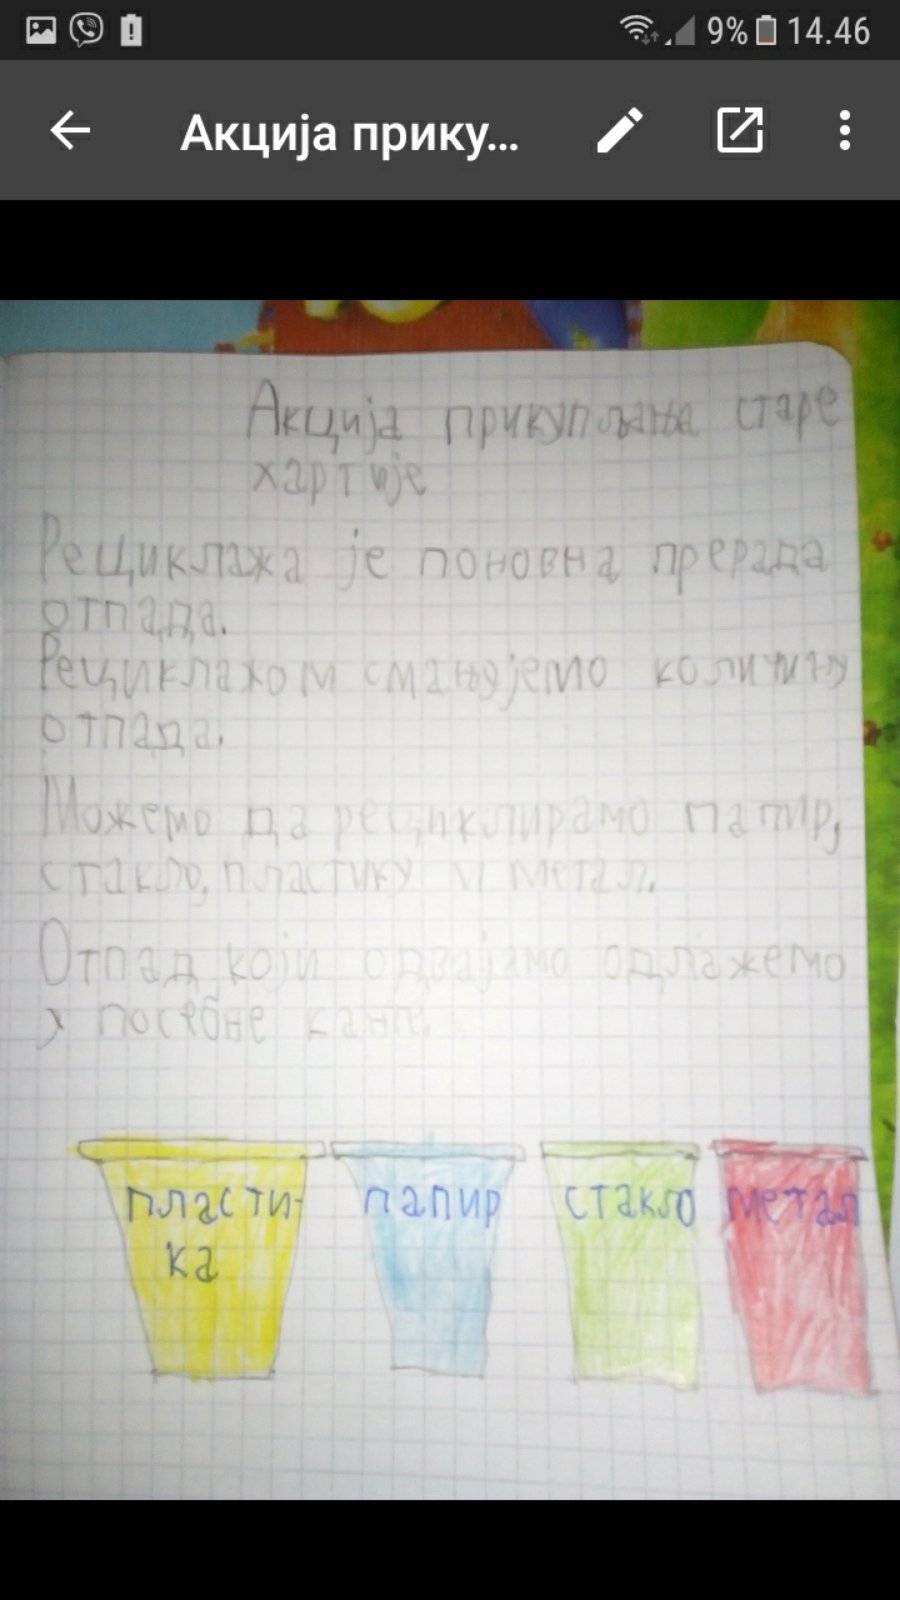 9% 14.46
Акција прику...
Акција прикупљања старе
хартије
Рециклажа је поновна прерада
отпада.
Рециклахом смањујемо количину
отпада.
Можемо да рециклирамо папир,
стакло, пластику и метал.
Отпад који одвајамо одлажемо
у посебне канте.
пласти-
ка
папир
стакло
метал